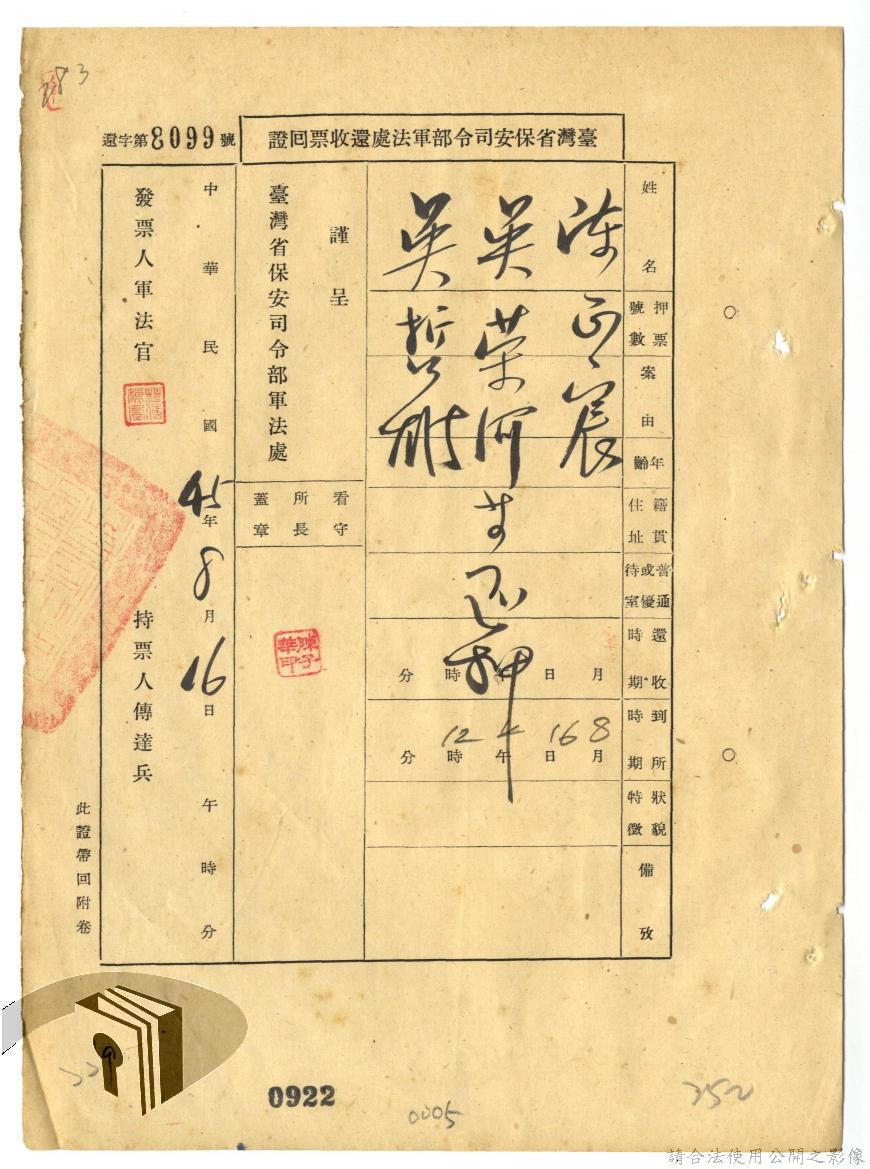 283
臺灣省保安司令部軍法處還收票回證
還字第8099號
姓名
押票號數
案由
年齡
籍貫住址
普通或優待室
還收時期
到所時期
狀貌特徵
備攷
陳正宸
吳榮河
吳哲雄
等
還押
月日午時分
8月16日午12時分
謹呈
臺灣省保安司令部軍法處
看守所長蓋章
陳子華印
中華民國45年8月16日午時分
發票人軍法官
持票人傳達兵
此證帶回附卷
0922
0005
252
請合法使用公開之影像